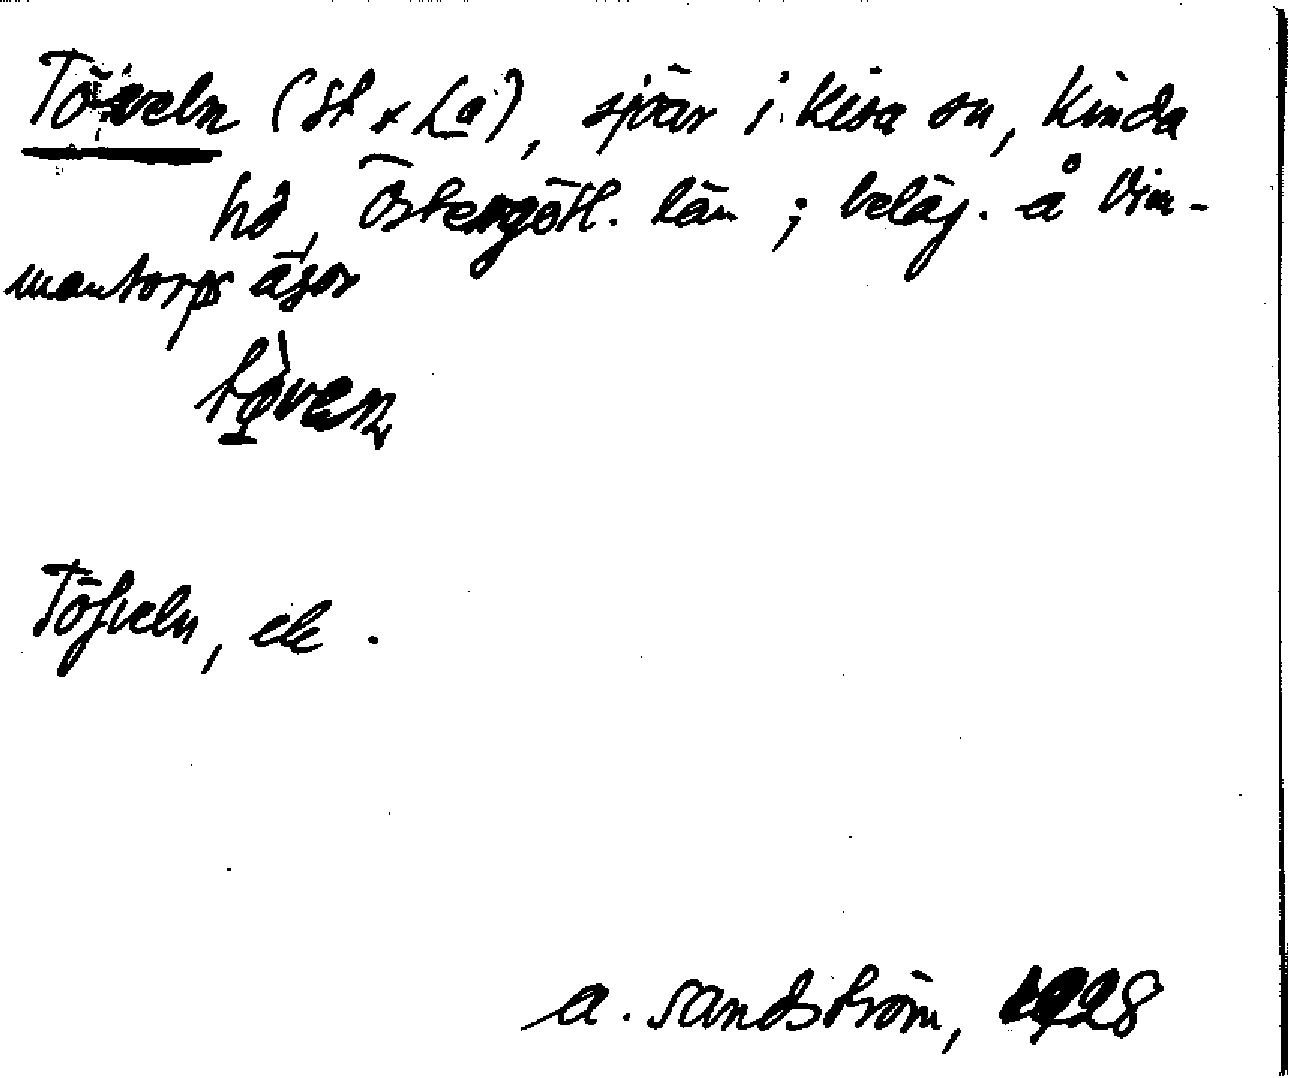 Töveln (St. & La), sjöar i Kisa sn, Kinda
hd, Östergötl. län; beläg. å Vim-
mantorps ägor
tö̀ven
Töfveln, ek.
A. Sandström, 1928